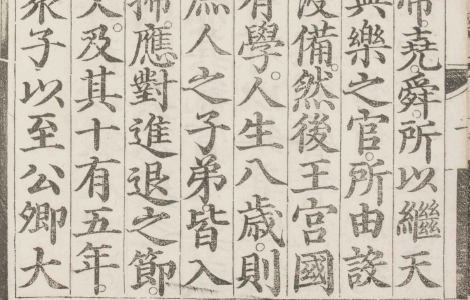 帝。堯。舜。所以繼天
典樂之官。所由設
寖備。然後王宮國
有學。人生八歲。則
庶人之子弟皆入
掃。應對進退之節。
文。及其十有五年。
衆子以至公卿大